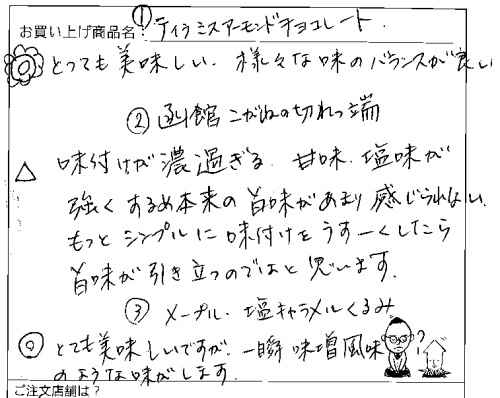 お買い上げ商品名: ①ティラミスアーモンドチョコレート.
とっても美味しい. 様々な味のバランスが良い
② 函館こがねの切れっ端
味付けが濃過ぎる. 甘味、塩味が
強くするめ本来の旨味があまり感じられない.
もっとシンプルに味付けをうすーくしたら
旨味が引き立つのではと思います.
③ メープル・塩キャラメルくるみ
とても美味しいですが、一瞬味噌風味
のような味がします.
?
ご注文店舗は?